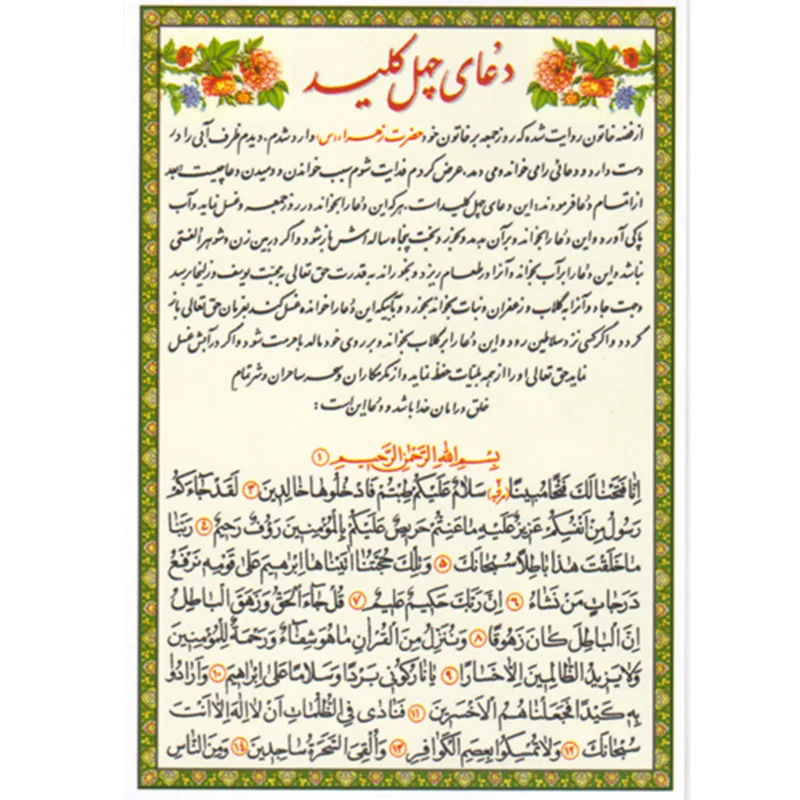 دعای چهل کلید
از فضه خاتون روایت شده که روز جمعه بر خاتون خود حضرت زهرا (س) وارد شدم، دیدم ظرف آبی را در
دست دارد و دعائی را می خواند و می دمد، عرض کردم فدایت شوم سبب خواندن و دمیدن دعا چیست بعد
از اتمام دعا فرمودند: این دعای چهل کلید است، هر که این دعا را بخواند در روز جمعه و غسل نماید و آب
پاکی آورد و این دعا را بخواند و بر آن بدمد و بخورد بخت پنجاه ساله اش باز شود و اگر در بین زن و شوهر الفتی
نباشد و این دعا را بر آب بخواند و آنرا در طعام ریزد و بخوراند به قدرت حق تعالی به محبت یوسف و زلیخا رسد
وجهت جادو آنرا به گلاب و زعفران و نبات بخواند بخورد و یا آنکه این دعا را خوانده غسل کند بفرمان حق تعالی باز
گردد و اگر کسی نزد سلاطین رود و این دعا را بر گلاب بخواند و بر روی خود مالد با حرمت شود و اگر در آبش غسل
نماید حق تعالی او را از همه بلیات حفظ نماید و از مکر مکاران و سحر ساحران و شر تمام
خلق در امان خدا باشد و دعا این است:
بِسْمِ اللهِ الرَّحْمٰنِ الرَّحِيمِ ①
اِنَّا فَتَحْنَا لَكَ فَتْحًا مُبِينًا سَلَامٌ عَلَيْكُمْ طِبْتُمْ فَادْخُلُوهَا خَالِدِينَ ③ لَقَدْ جَاءَكُمْ
رَسُولٌ مِنْ اَنْفُسِكُمْ عَزِيزٌ عَلَيْهِ مَا عَنِتُّمْ حَرِيصٌ عَلَيْكُمْ بِالْمُؤْمِنِينَ رَؤُفٌ رَحِيمٌ ④ رَبَّنَا
مَا خَلَقْتَ هٰذَا بَاطِلًا سُبْحَانَكَ ⑤ وَتِلْكَ حُجَّتُنَا اٰتَيْنَاهَا اِبْرٰهِيمَ عَلٰى قَوْمِهِ نَرْفَعُ
دَرَجَاتٍ مَنْ نَشَاءُ ⑥ اِنَّ رَبَّكَ حَكِيمٌ عَلِيمٌ ⑦ قُلْ جَاءَ الْحَقُّ وَزَهَقَ الْبَاطِلُ
اِنَّ الْبَاطِلَ كَانَ زَهُوقًا ⑧ وَنُنَزِّلُ مِنَ الْقُرْاٰنِ مَا هُوَ شِفَاءٌ وَرَحْمَةٌ لِلْمُؤْمِنِينَ
وَلَا يَزِيدُ الظَّالِمِينَ اِلَّا خَسَارًا ⑨ يَا نَارُ كُونِي بَرْدًا وَسَلَامًا عَلٰى اِبْرٰاهِيمَ ⑩ وَاَرَادُو
بِهِ كَيْدًا فَجَعَلْنَاهُمُ الْاَخْسَرِينَ ⑪ فَنَادٰى فِي الظُّلُمَاتِ اَنْ لَا اِلٰهَ اِلَّا اَنْتَ
سُبْحَانَكَ ⑫ وَلَا تُمْسِكُوا بِعِصَمِ الْكَوَافِرِ ⑬ وَاُلْقِيَ السَّحَرَةُ سَاجِدِينَ ⑭ وَمِنَ النَّاسِ